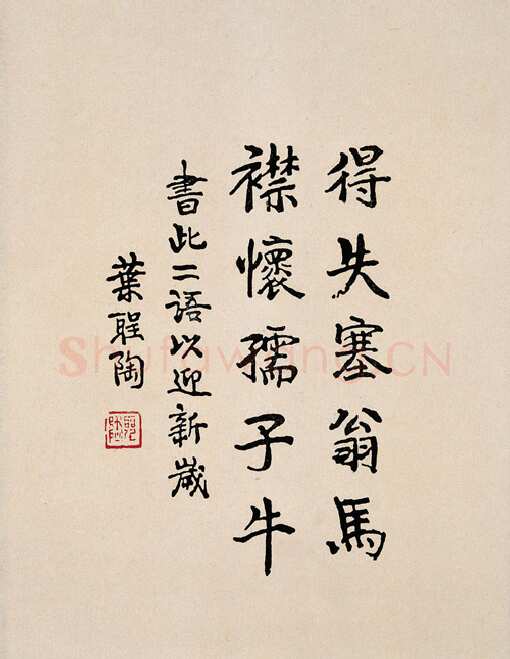 得失塞翁馬
襟懷孺子牛
書此二語以迎新歲
葉聖陶
Shufawang.CN